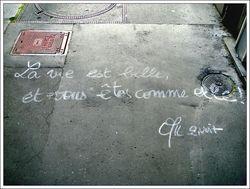 La vie est belle,
et vous êtes comme elle!